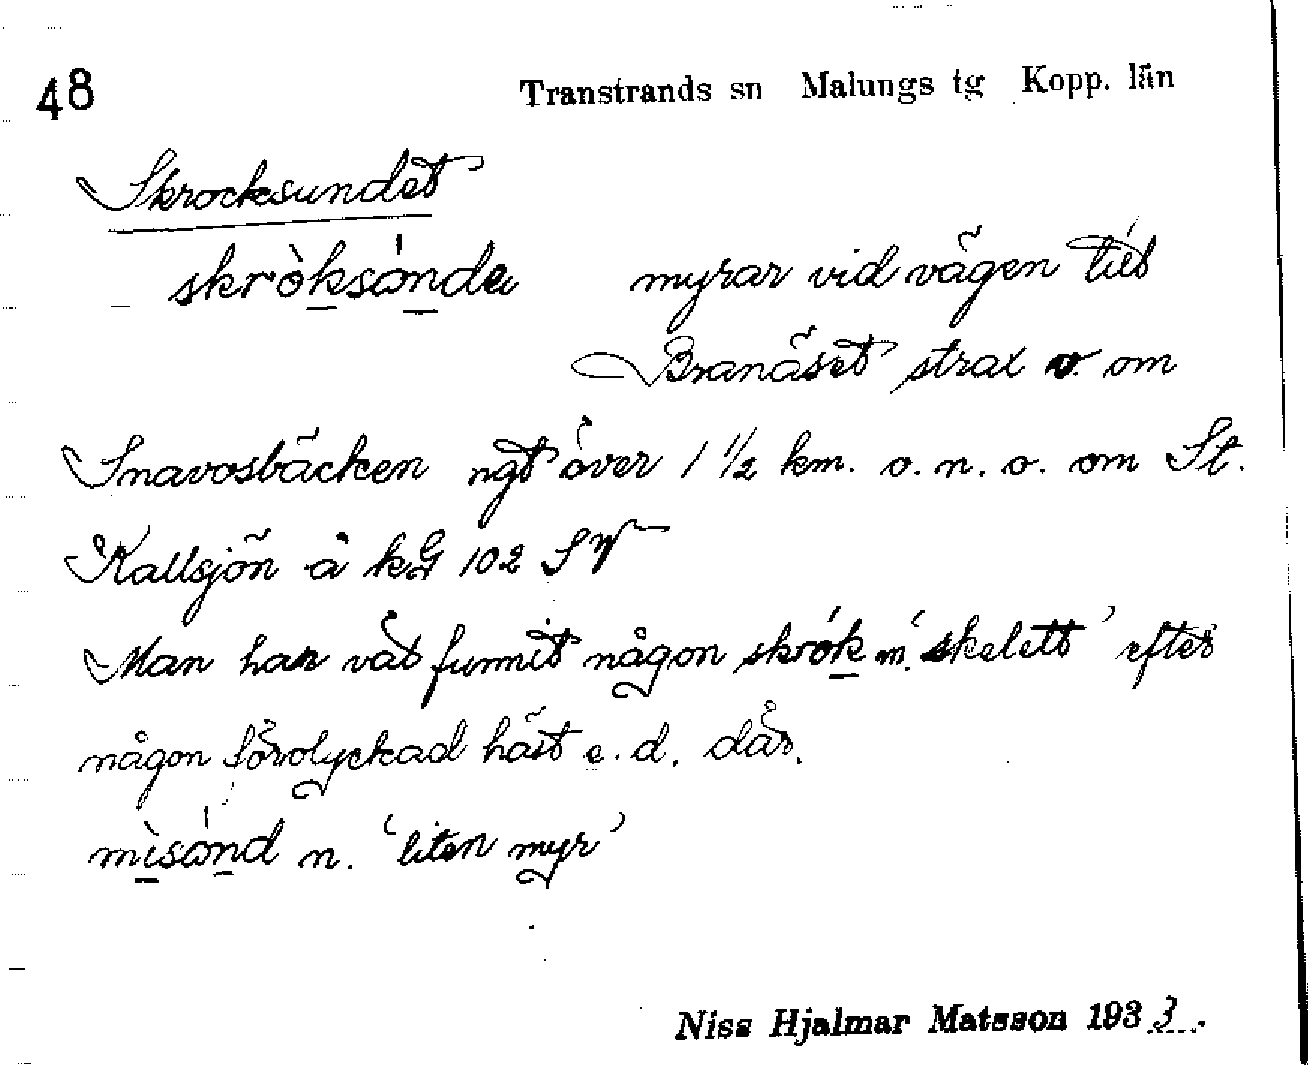 48
Transtrands sn Malungs tg Kopp. län
Skrocksundet
skròksánda myrar vid vägen till
Branäset strax v. om
Snavosbäcken ngt över 1 1/2 km. o.n.o. om St.
Kallsjön å kG 102 SV
Man har väl funnit någon skrók m. 'skelett' efter
någon förolyckad häst e.d. där.
mìsánd n. 'liten myr'
Niss Hjalmar Matsson 1933